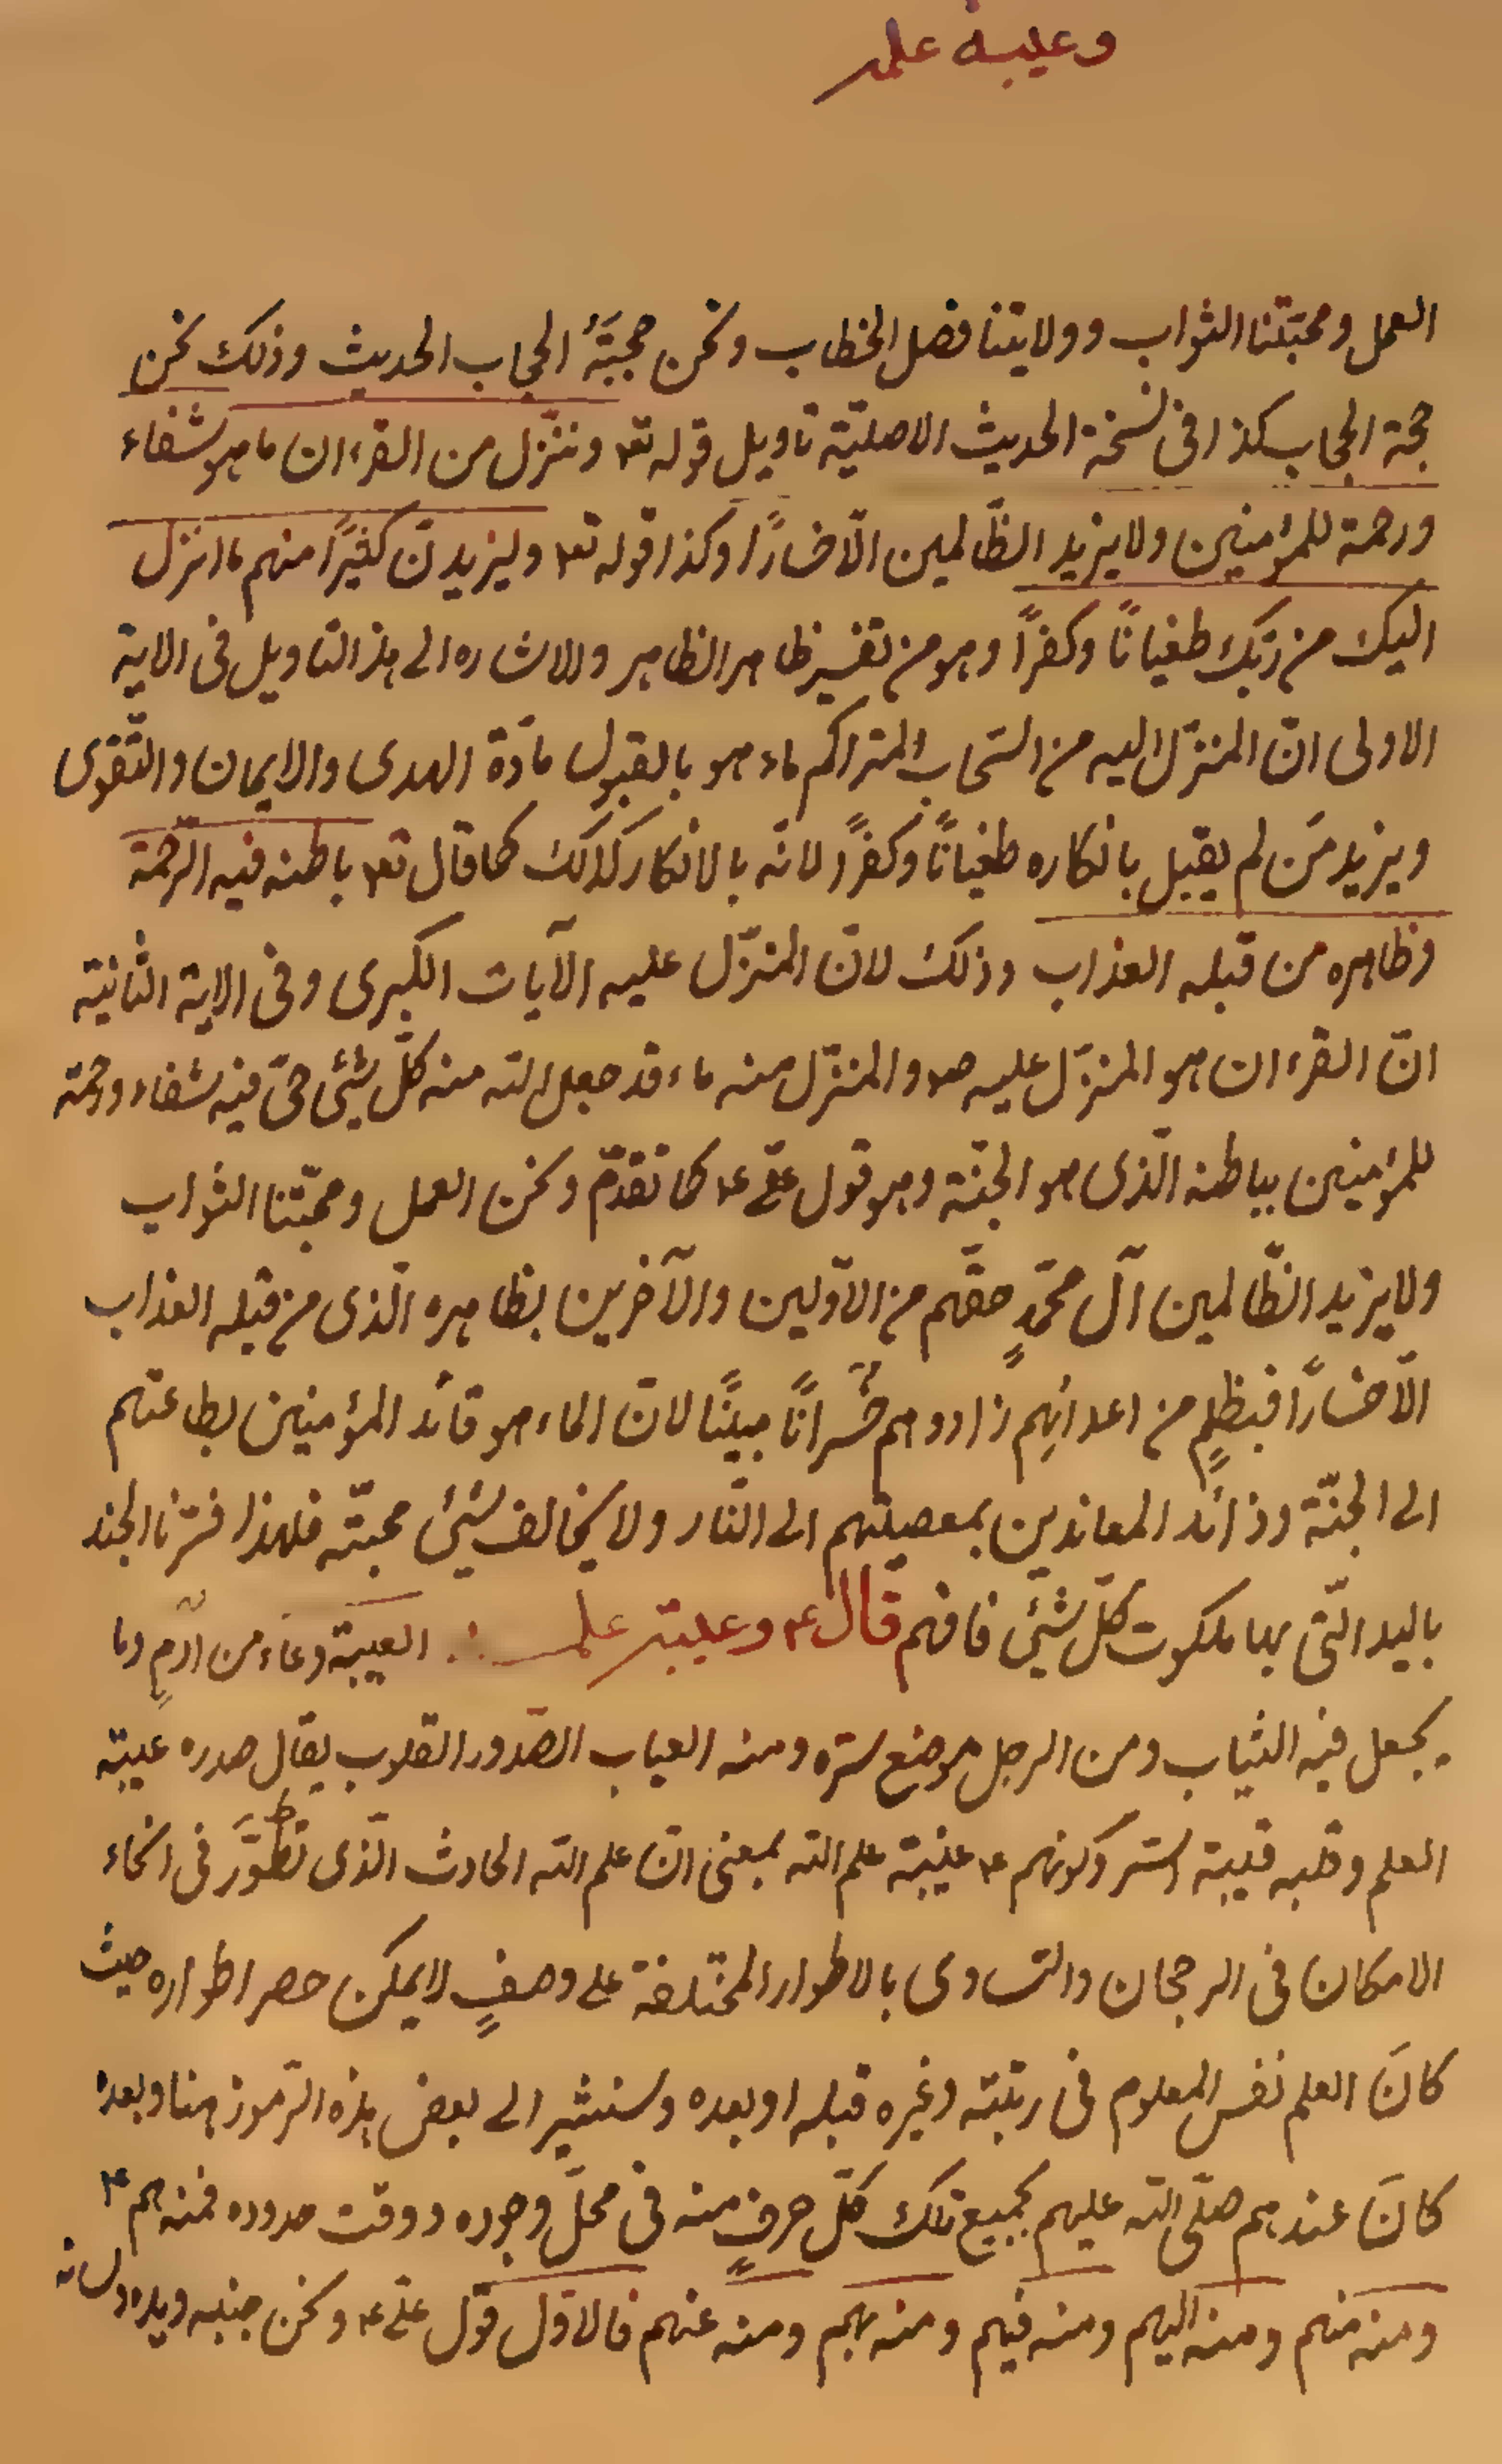 وعيبة علمه
العمل ومحبّتنا الثواب وولايتنا فصل الخطاب ونحن حجبَةُ الحجاب الحديث وذلك نحن
حجة الحجاب كذا فى نسخة الحديث الاصليّة تاويل قوله تع۴ وننزّل من القرءان ما هو شفاء
ورحمة للمؤمنين ولا يزيد الظّالمين الّا خسارًا وكذا قوله تع۴ وليزيدنّ كثيرًا منهم ما انزل
اليك من ربّك طغيانًا وكفرًا وهو من تفسير ظاهر الظاهر والاشاره الى هذ التاويل فى الاية
الاولى انّ المنزّل اليه من السّحاب المتراكم ماء هو بالقبول مادّة الهدى والايمان والتّقوى
ويزيد مَن لم يقبل بانكاره طغيانًا وكفرًا لانّه بالانكار كذلك كما قال تع۴ باطنه فيه الرّحمة
وظاهره من قبله العذاب وذلك لانّ المنزّل عليه الآيات الكبرى وفى الاية الثانية
انّ القرءان هو المنزّل عليه ص۴ والمنزّل منه ماء قد جعل الله منه كلّ شئى حىّ فيه شفاء ورحمة
للمؤمنين بباطنه الّذى هو الجنّة وهو قول علىّ ع۴ كما تقدّم ونحن العمل ومحبّتنا الثواب
ولا يزيد الظّالمين آل محمّدٍ حقّهم من الاوّلين والآخرين بظاهره الّذى من قبله العذاب
الّا خسارًا فبظلمٍ من اعدائهم زادوهم خُسرانًا مبينًا لانّ الماء هو قائد المؤمنين بطاعتهم
الى الجنّة وذائد المعاندين بمعصيتهم الى النّار ولا يخالف شيئ محبّته فلهذا فسّرنا الجند
باليد الّتى بها ملكوت كلّ شيئ فافهم قال ع۴ وعيبة علمه ∴ العيبة وعاء من ادمٍ وما
يجعل فيه الثياب ومن الرجل موضع سرّه ومنه العياب الصّدور القلوب يقال صدره عيبة
العلم وقلبه قيبة السّر وكونهم ع۴ عيبة علم الله بمعنى انّ علم الله الحادث الّذى تطوَّرَ فى انحاء
الامكان فى الرجحان والتساوى بالاطوار المختلفة على وصفٍ لا يمكن حصر اطواره حيث
كانَ العلم نفس المعلوم فى رتبته وغيره قبله او بعده وسنشير الى بعض هذه الرّموز هنا وبعده
كانَ عندهم صلّى الله عليهم بجميع تلك كلّ حرفٍ منه فى محلّ وجوده ووقت حدوده فمنه هم ع۴
ومنه منهم ومنه اليهم ومنه فيهم ومنه بهم ومنه عنهم فالاوّل قول علىّ ع۴ ونحن جنبه ويده ولسانه